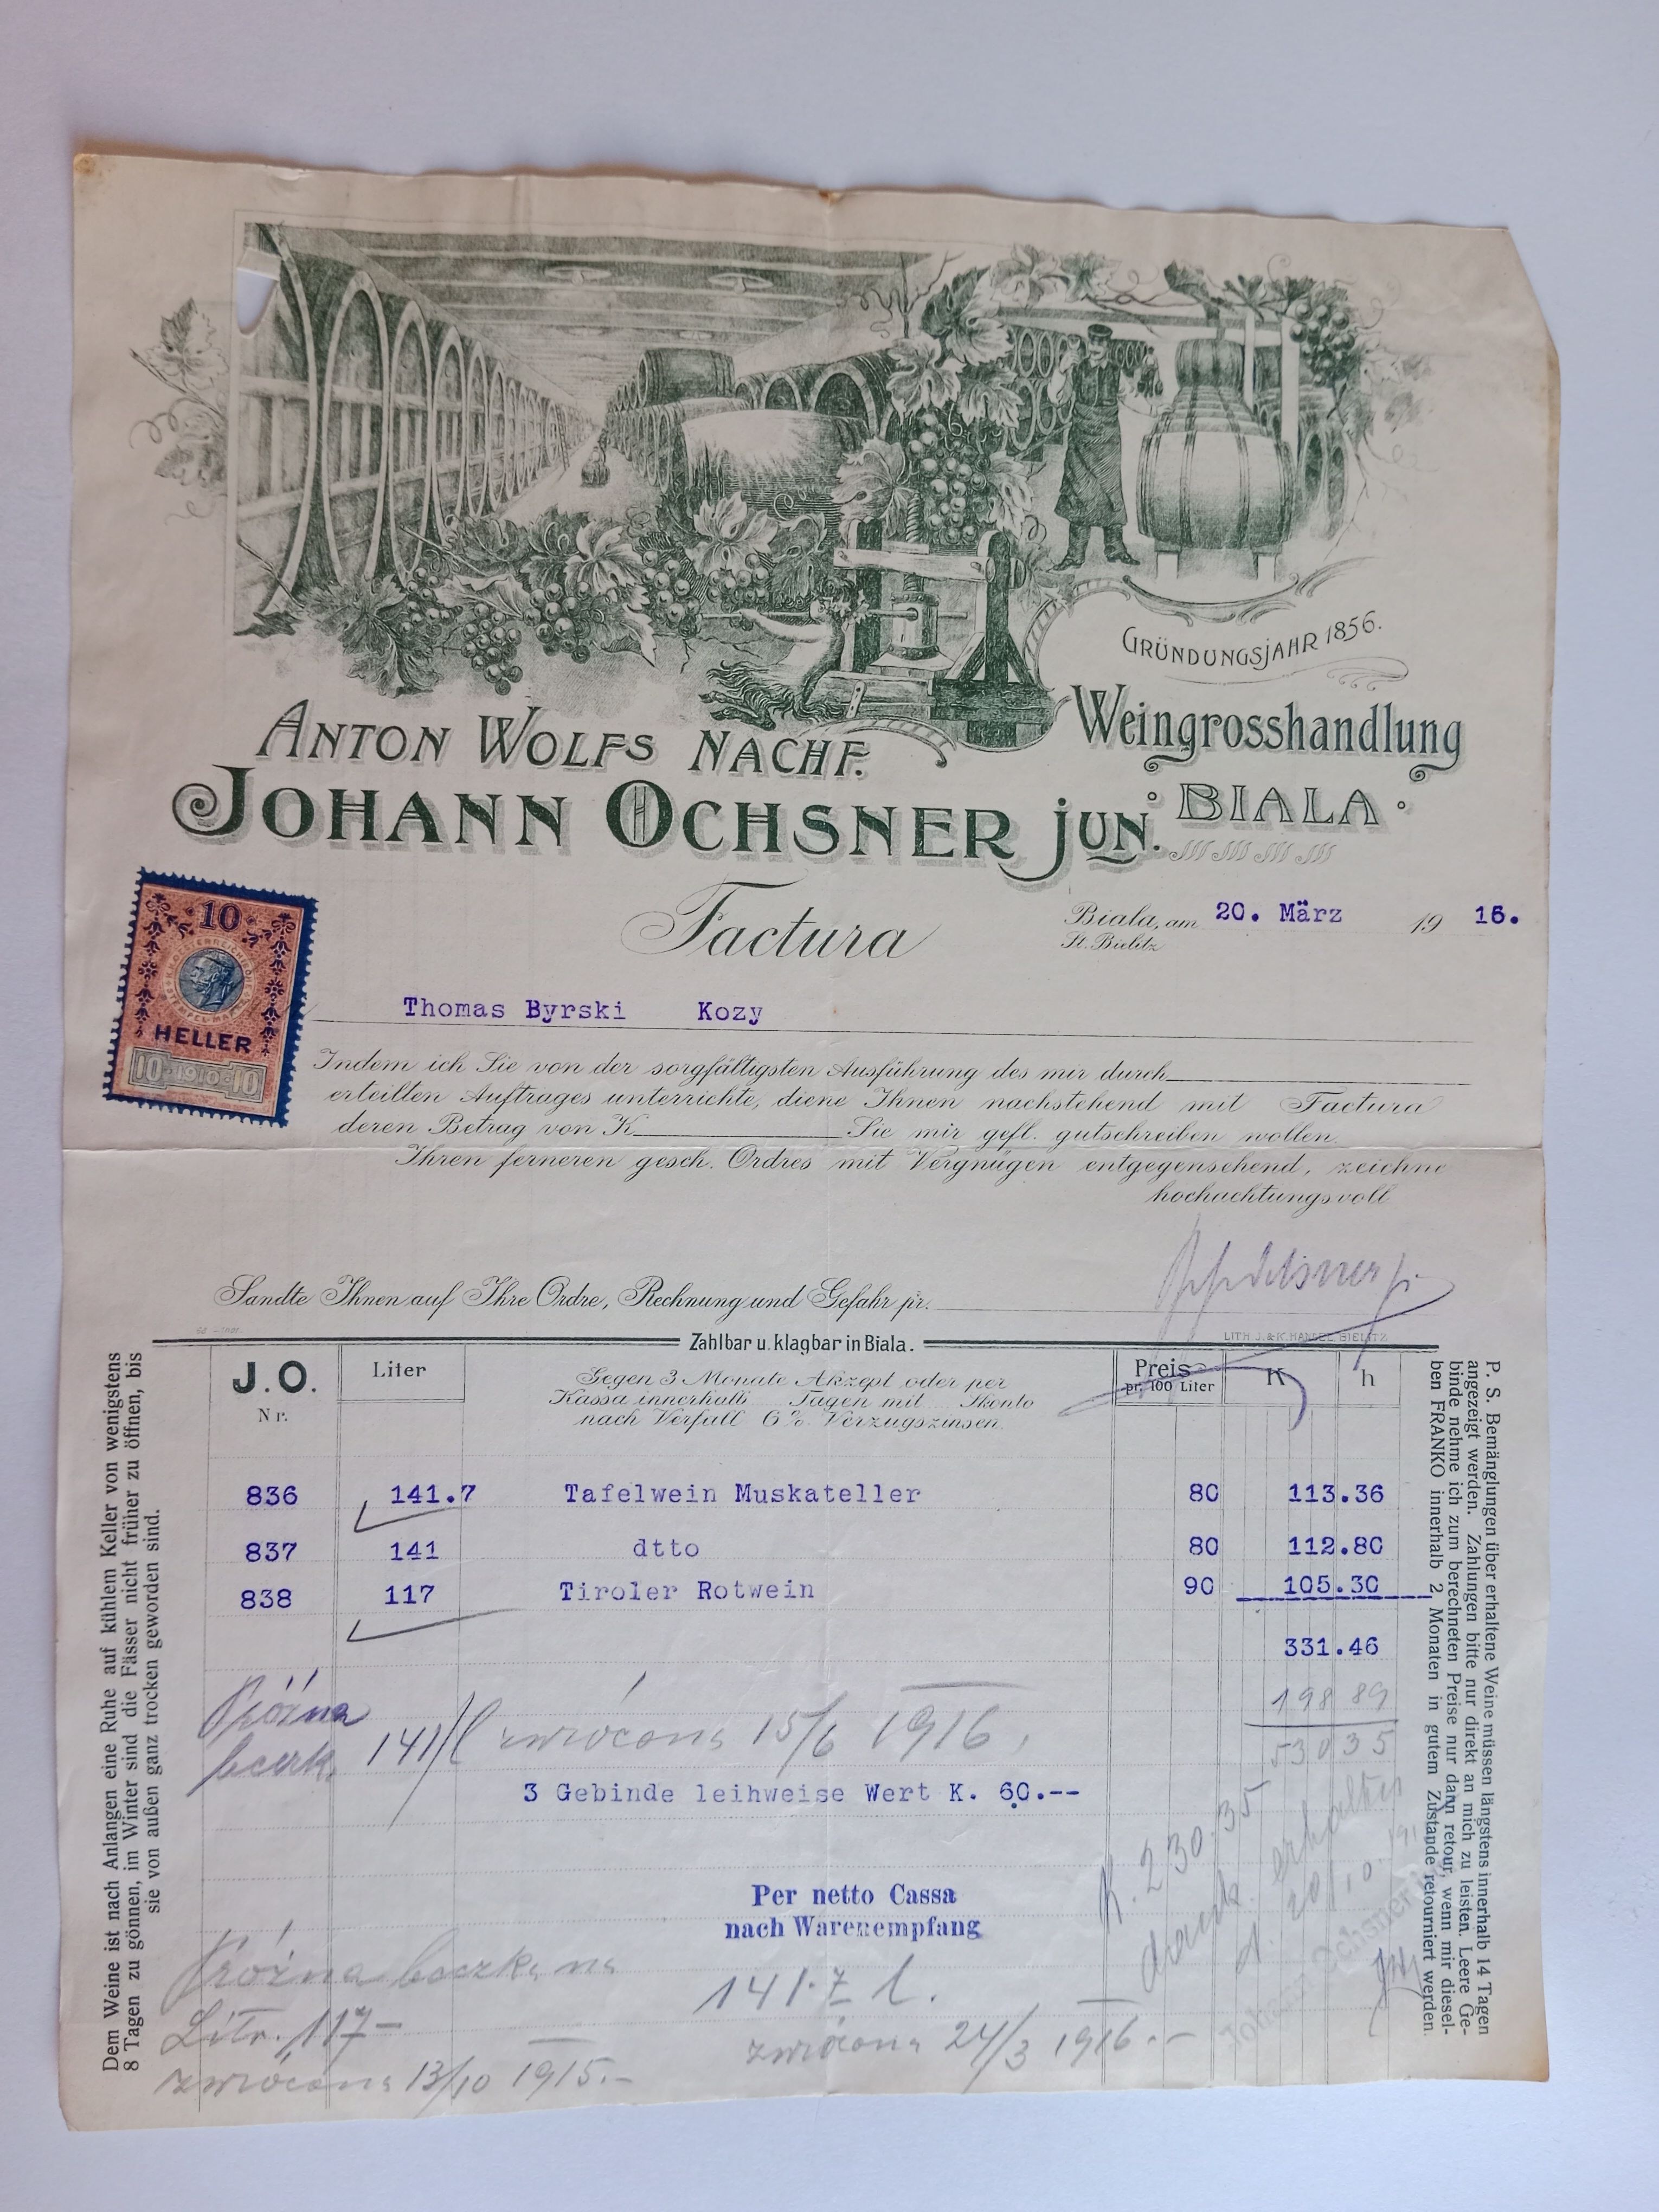 GRÜNDUNGSJAHR 1856.
ANTON WOLFS NACHF.
Weingrosshandlung
JOHANN OCHSNER JUN.
BIALA
Factura
Biala, am 20. März 19 16.
St. Bielitz
10
HELLER
10 1910 10
Thomas Byrski Kozy
Indem ich Sie von der sorgfältigsten Ausführung des mir durch
erteilten Auftrages unterrichte, diene Ihnen nachstehend mit Factura
deren Betrag von K Sie mir gefl. gutschreiben wollen.
Ihren ferneren gesch. Ordres mit Vergnügen entgegensehend, zeichne
hochachtungsvoll
Sandte Ihnen auf Ihre Ordre, Rechnung und Gefahr pr.
Zahlbar u. klagbar in Biala.
LITH. J. & K. HANDEL, BIELITZ
J.O. Nr.
Liter
Gegen 3 Monate Akzept oder per
Kassa innerhalb Tagen mit Skonto
nach Verfall 6% Verzugszinsen.
Preis pr. 100 Liter
K h
836 141.7 Tafelwein Muskateller 80 113.36
837 141 dtto 80 112.80
838 117 Tiroler Rotwein 90 105.30
331.46
198 89
530 35
Próżna
beczk. 141/l zwrócona 15/6 1916.
3 Gebinde leihweise Wert K. 60.--
K. 230.35
dank. erhalten
d. 20/10
Per netto Cassa
nach Warenempfang
Johann Ochsner
Próżna beczka na
Litr. 117-
zwrócona 13/10 1915.-
141.7 l.
zwrócona 24/3 1916.-
Dem Weine ist nach Anlangen eine Ruhe auf kühlem Keller von wenigstens
8 Tagen zu gönnen, im Winter sind die Fässer nicht früher zu öffnen, bis
sie von außen ganz trocken geworden sind.
P. S. Bemänglungen über erhaltene Weine müssen längstens innerhalb 14 Tagen
angezeigt werden. Zahlungen bitte nur direkt an mich zu leisten. Leere Ge-
binde nehme ich zum berechneten Preise nur dann retour, wenn mir diesel-
ben FRANKO innerhalb 2 Monaten in gutem Zustande retourniert werden.